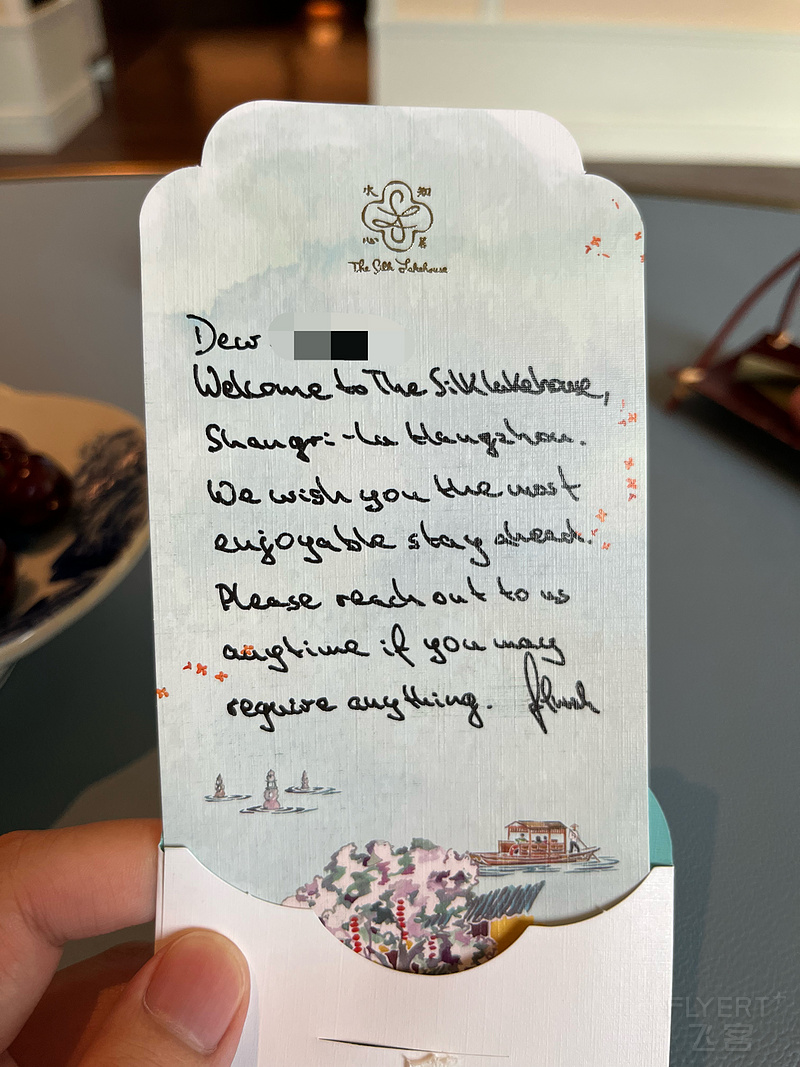 水 知
心 善
The Silk Lakehouse
Dear
Welcome to The Silk Lakehouse,
Shangri-La Hangzhou.
We wish you the most
enjoyable stay ahead.
Please reach out to us
anytime if you may
require anything.
FLYERT
飞客